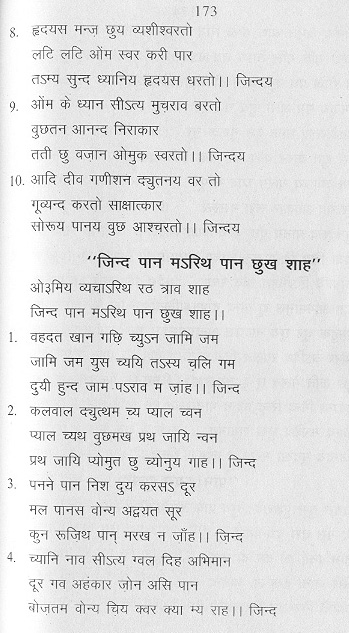 173
8. हृदयस मन्ज़ छुय व्यशीश्वरतो
लटि लटि ओंम स्वर करी पार
तऽम्य सुन्द ध्यानिय हृदयस धरतो।। जिन्दय
9. ओंम के ध्यान सीऽत्य मुच़राव बरतो
वुछतन आनन्द निराकार
तती छु वजान ओमुक स्वरतो।। जिन्दय
10. आदि दीव गणीशन द्युतनय वर तो
गूव्यन्द करतो साक्षात्कार
सोरूय पानय वुछ आश्च़रतो।। जिन्दय
"जिन्द पान मऽरिथ पान छुख शाह"
ओ३मिय व्यचाऽरिथ रठ त्राव शाह
जिन्द पान मऽरिथ पान छुख शाह।।
1. वहदत खान गछि च्युऽन जामि जम
जामि जम युस च्ययि तऽस्य च़लि गम
दुयी हुन्द जाम पऽराव म ज़ांह।। जिन्द
2. कलवाल द्युत्थम च्य प्याल च्वन
प्याल च्यथ वुछमख प्रथ जायि न्वन
प्रथ जायि प्योमुत छु च्योनुय गाह।। जिन्द
3. पनने पान निश दुय करसऽ दूर
मल पानस वोन्य अद्वयत सूर
कुन रूज़िथ पान् मरख न जाँह।। जिन्द
4. च्यानि नाव सीऽत्य ग्वल दिह अभिमान
दूर गव अहंकार ज़ोन असि पान
बोज़तम वोन्य च़िय क्वर क्या म्य राह।। जिन्द